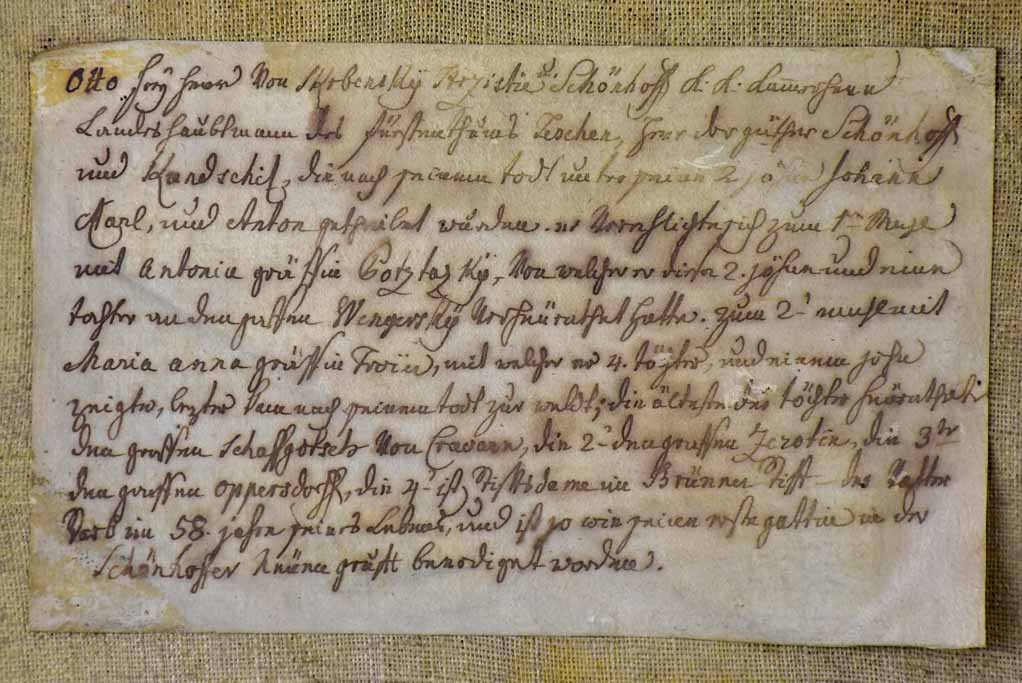 Otto frey Herr Von Skrbensky Hrzistie & Schönhoff K: K: Kammerherr
Landeshaubtmann des fürstenthums Teschen, Herr der güther Schönhoff
und Kandschitz, die nach seinem todt unter seinen 2. söhnen Johann
Carl, und Anton getheilet wurden. er Verehlichte sich zum 1ten Mahl
mit Antonia gräffin Gotztazky, Von welcher er diese 2. söhne und eine
tochter an den graffen Wengersky Verheürathet hatte. zum 2t mahl mit
Maria anna gräffin Froiin, mit welcher er 4. töchter, und einen sohn
zeigte, lezter kam nach seinem todt zur weldt; die älteste der töchter heürathete
den graffen Schaffgotsch Von, die 2t den graffen Zerotin, die 3te
den graffen Oppersdorff, die 4t ist Stiftsdame im Brünner Stift der Vatter
starb im 58. jahre seines Lebens, und ist so wie seine erste gattin in der
Schönhoffer gruft beerdiget worden.